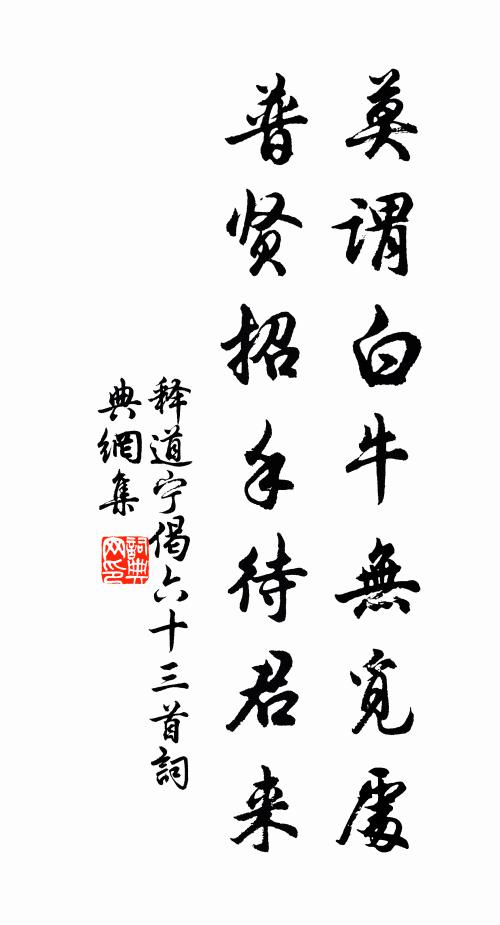 莫谓白牛無觅處
普贤招手待君来
释道宁偈六十三首詞
典網集
詞典网印